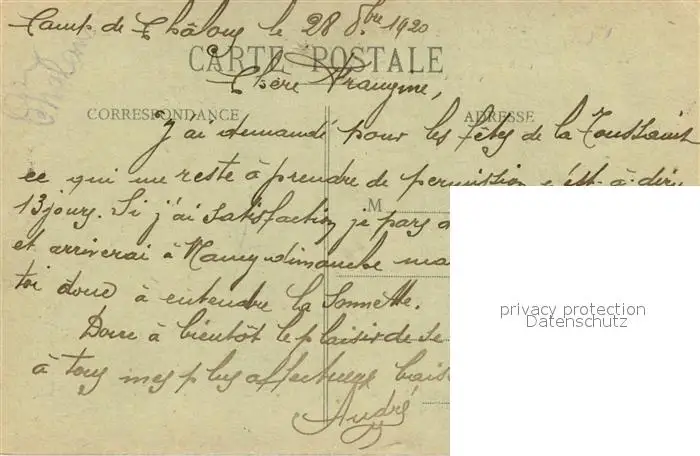 Camp de Châlons le 28 8bre 1920
CARTE POSTALE
Chère Frangine,
CORRESPONDANCE
ADRESSE
J'ai demandé pour les fêtes de la Toussaint
ce qui me reste à prendre de permission c'est-à-dire
13 jours. Si j'ai satisfaction je pars
M
et arriverai à Nancy dimanche
toi donc à entendre la sonnette.
Donc à bientôt le plaisir de se
à tous mes plus affectueux
André
privacy protection
Datenschutz